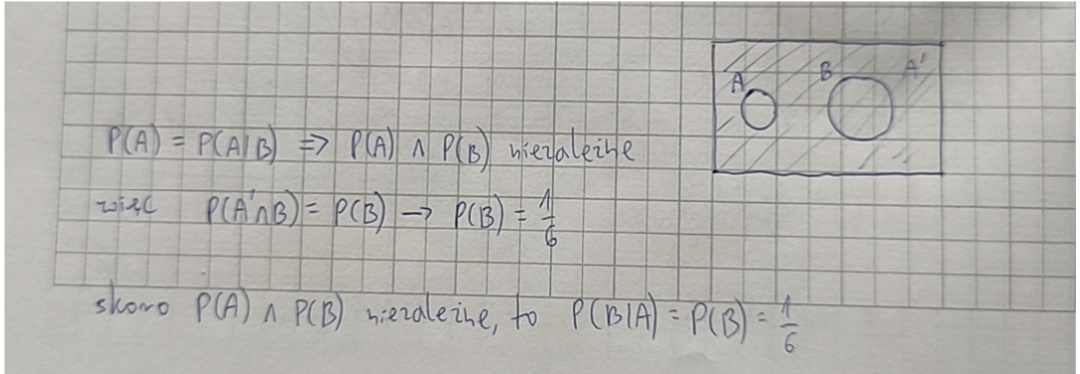 A B A'
P(A) = P(A|B) => P(A) ∧ P(B) niezależne
więc P(A'∩B) = P(B) → P(B) = 1/6
skoro P(A) ∧ P(B) niezależne, to P(B|A) = P(B) = 1/6